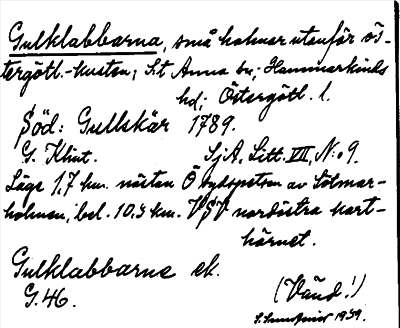 Gulklabbarna, små holmar utanför ös-
tergötl.-kusten; S:t Anna sn; Hammarkinds
hd; Östergötl. l.
Söd: Gullskär 1789.
G. Klint. SjA, Litt. VII, N:o 9.
Läge 1,7 km. nästan Ö sydspetsen av Tolmar-
holmen, bel. 10.3 km. VSV nordöstra kart-
hörnet.
Gulklabbarne ek.
G. 46. (Vänd!)
1939.